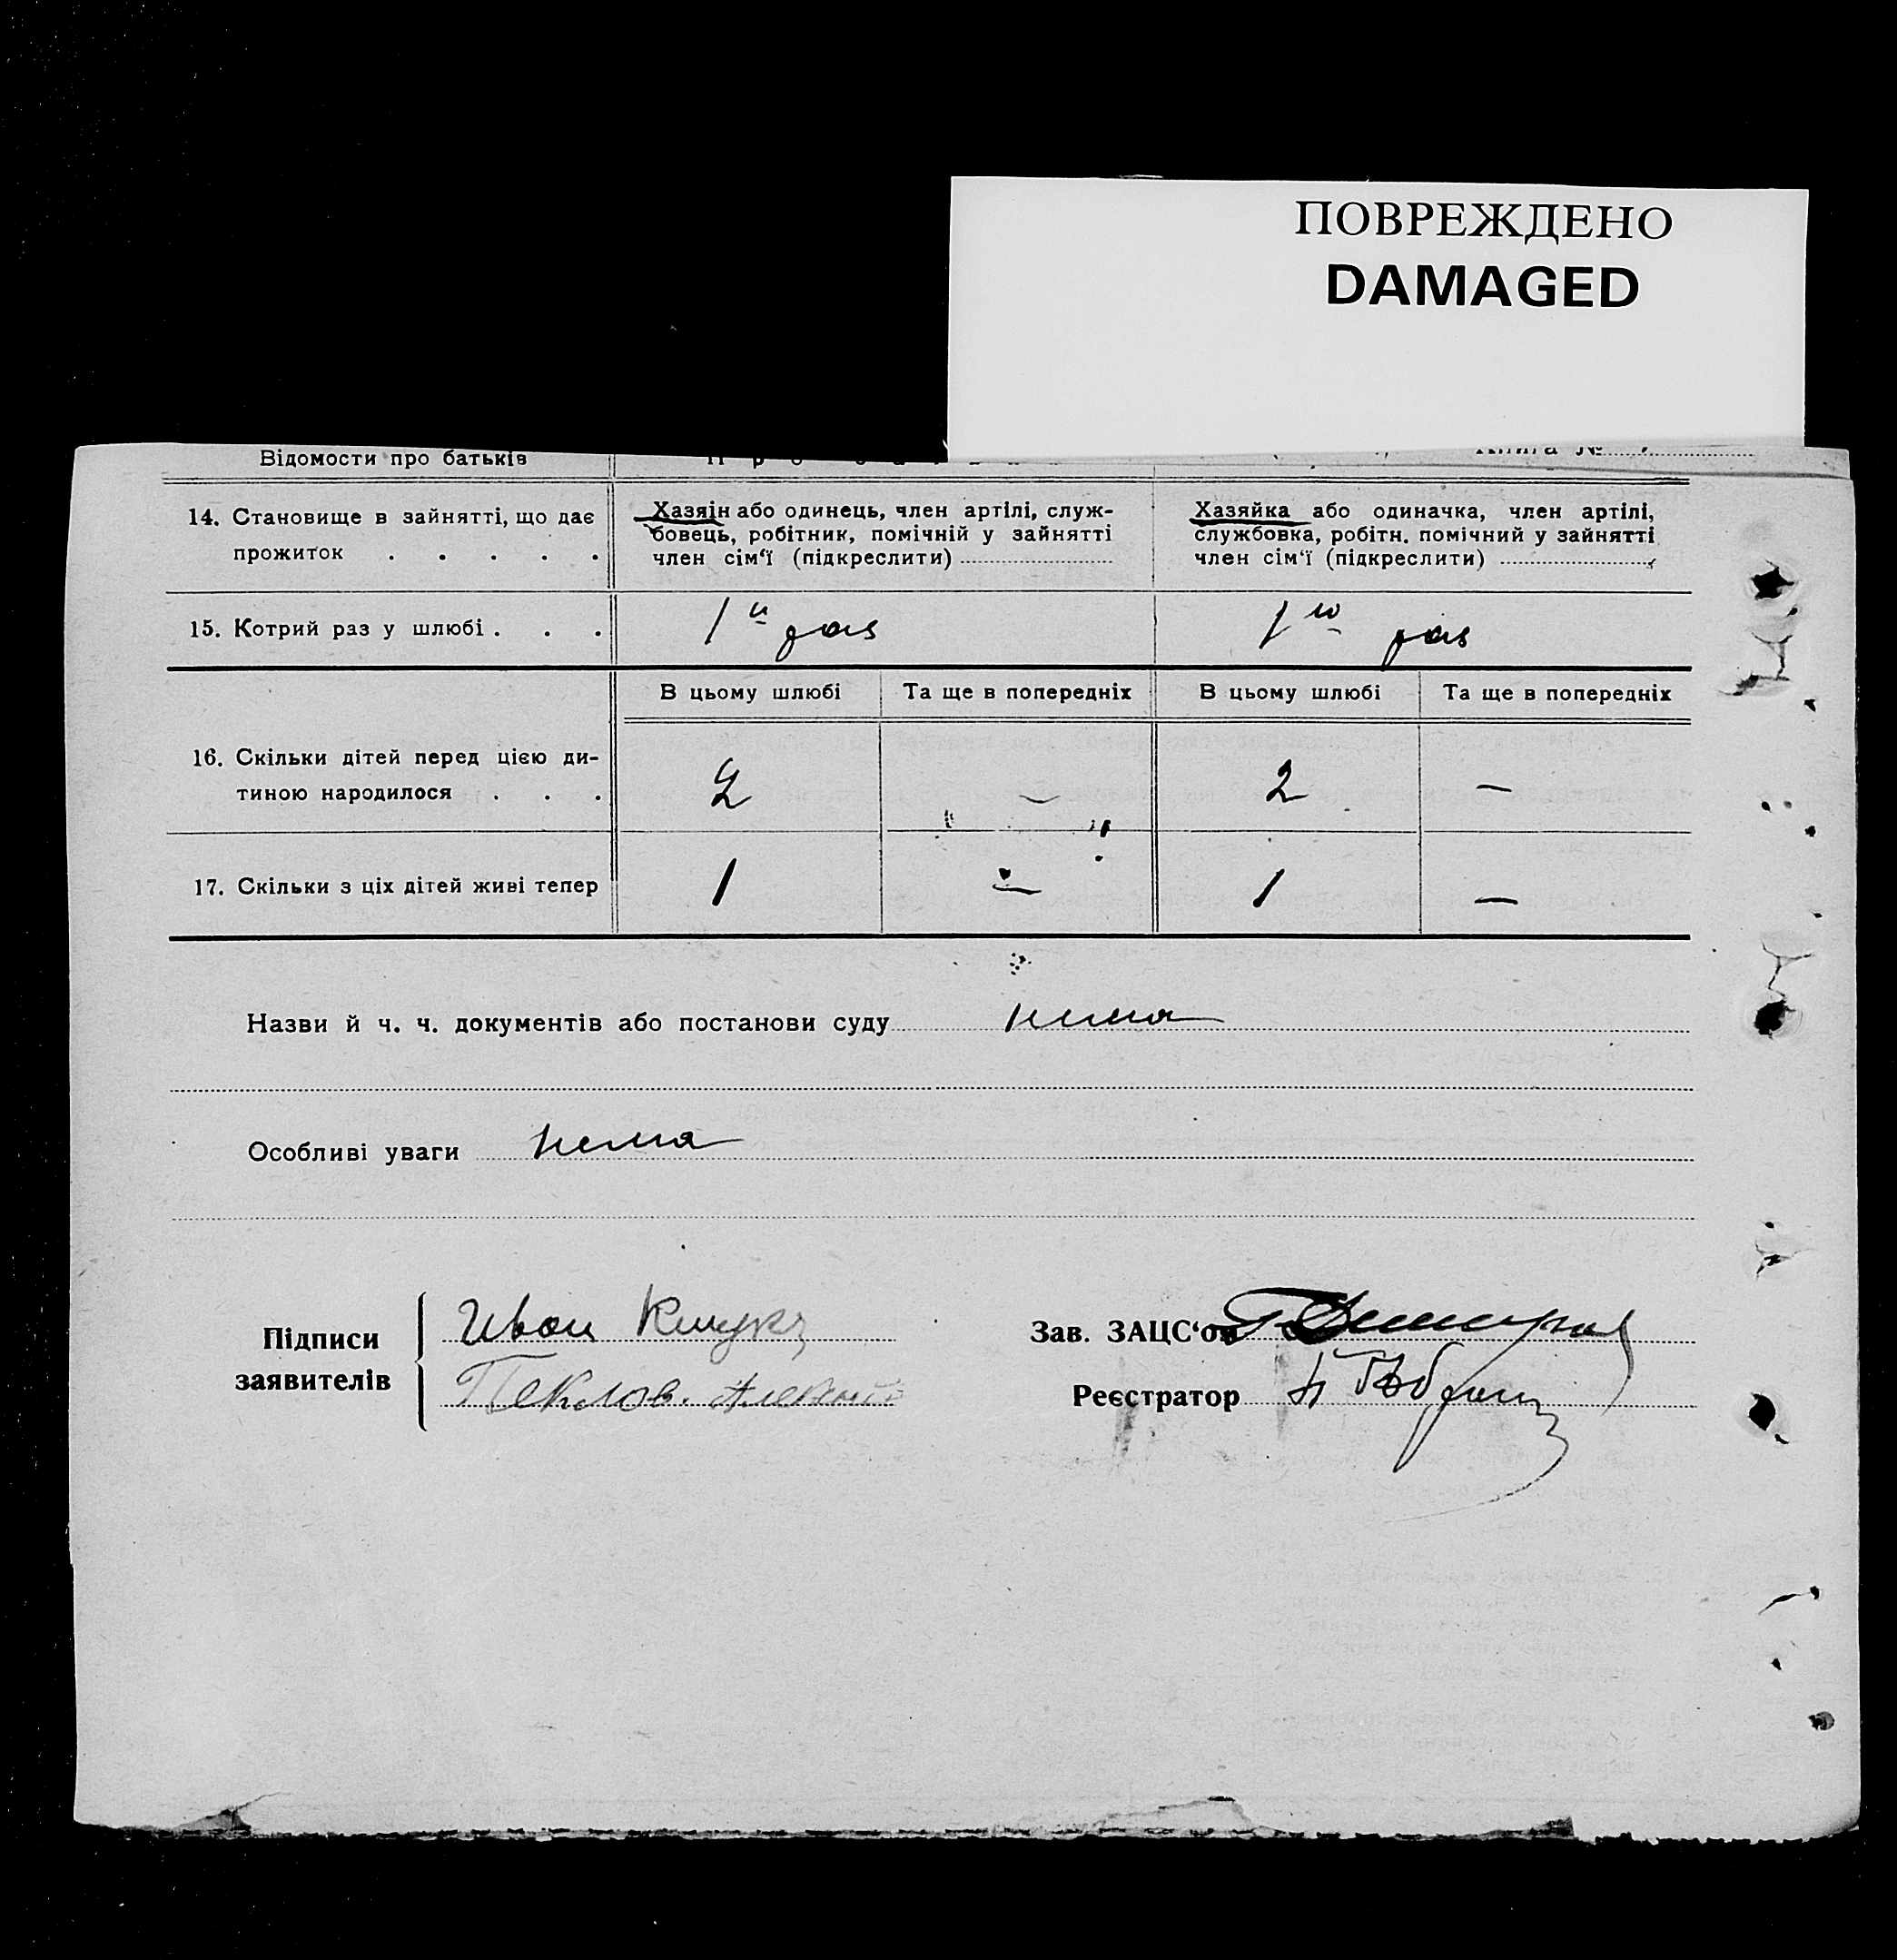 ПОВРЕЖДЕНО
DAMAGED
Відомости про батьків
Книга №
14. Становище в зайнятті, що дає прожиток . . . . .
Хазяїн або одинець, член артілі, служ-
бовець, робітник, помічній у зайнятті
член сім'ї (підкреслити)
Хазяйка або одиначка, член артілі,
службовка, робітн. помічний у зайнятті
член сім'ї (підкреслити)
15. Котрий раз у шлюбі . . .
1й раз
1ю раз
В цьому шлюбі
Та ще в попередніх
В цьому шлюбі
Та ще в попередніх
16. Скільки дітей перед цією ди-
тиною народилося . . .
2
–
2
–
17. Скільки з ціх дітей живі тепер
1
–
1
–
Назви й ч. ч. документів або постанови суду нема
Особливі уваги нема
Підписи
заявителів
Иван
Зав. ЗАЦС'ом
Реєстратор